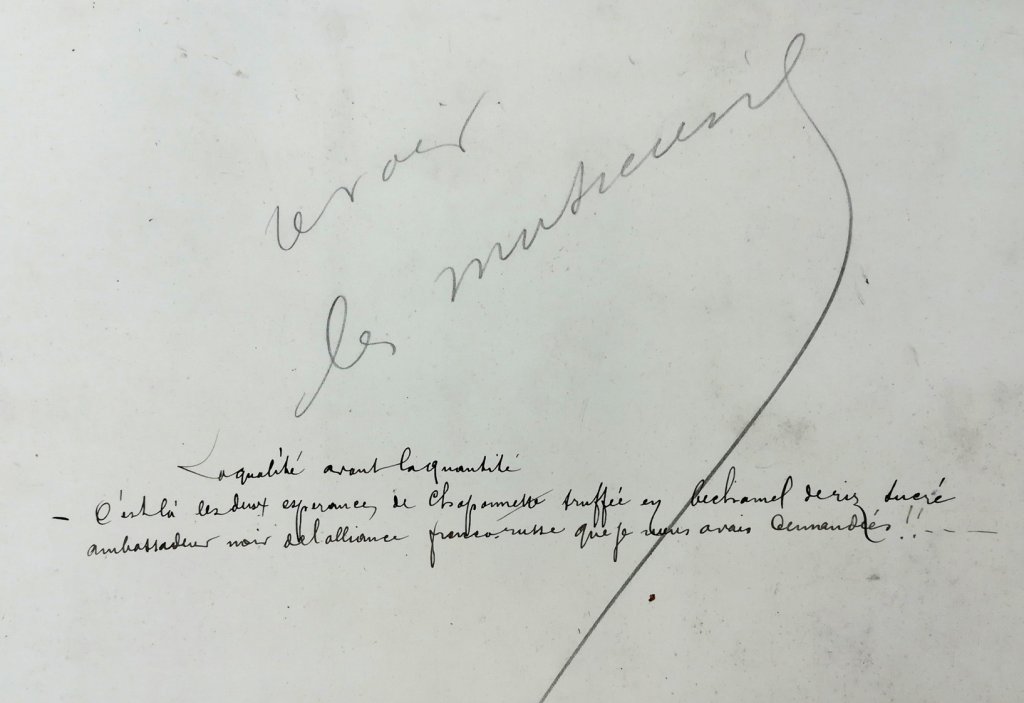 revoir
les
La qualité avant la quantité
– C'est là les deux esperances de Chaponnette truffée en bechamel de riz sucré
ambassadeur noir de l'alliance franco-russe que je vous avais demandées !! - - —